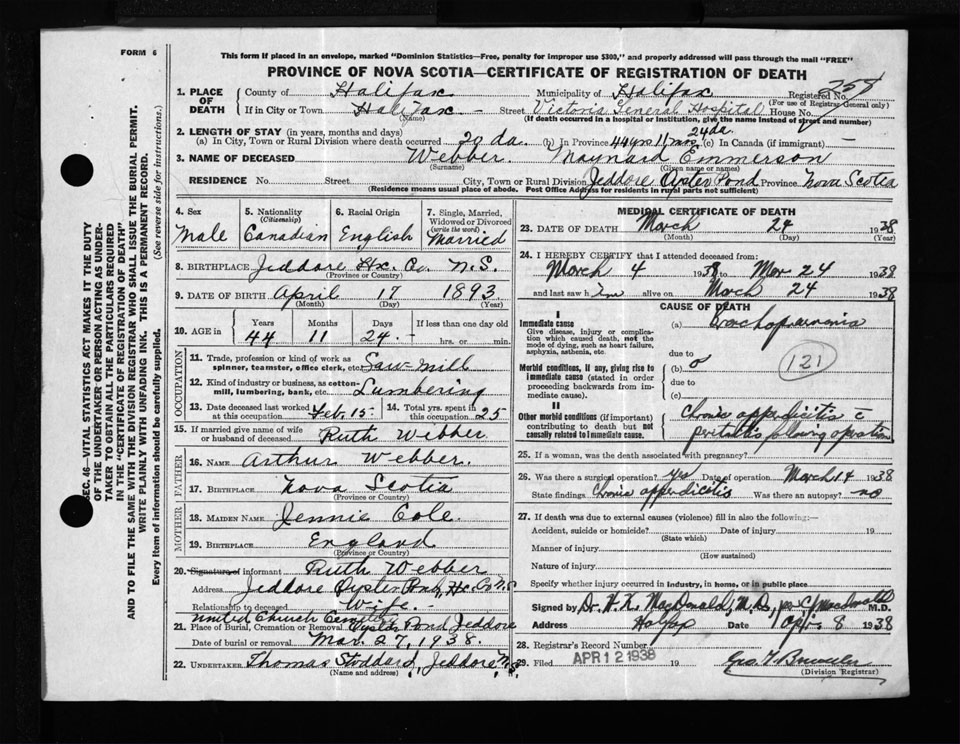 FORM 6
This form if placed in an envelope, marked "Dominion Statistics—Free, penalty for improper use $300," and properly addressed will pass through the mail "FREE"
PROVINCE OF NOVA SCOTIA—CERTIFICATE OF REGISTRATION OF DEATH
SEC. 46—VITAL STATISTICS ACT MAKES IT THE DUTY
OF THE UNDERTAKER OR PERSON ACTING AS UNDER-
TAKER TO OBTAIN ALL THE PARTICULARS REQUIRED
IN THE "CERTIFICATE OF REGISTRATION OF DEATH"
AND TO FILE THE SAME WITH THE DIVISION REGISTRAR WHO SHALL ISSUE THE BURIAL PERMIT.
WRITE PLAINLY WITH UNFADING INK. THIS IS A PERMANENT RECORD.
Every item of information should be carefully supplied. (See reverse side for instructions.)
1. PLACE OF DEATH
County of Halifax Municipality of Halifax Registered No.
(For use of Registrar-General only)
If in City or Town Halifax - Street Victoria General Hospital House No.
(Name) (If death occurred in a hospital or institution, give the name instead of street and number)
2. LENGTH OF STAY (in years, months and days)
(a) In City, Town or Rural Division where death occurred 20 da. (b) In Province 44 yrs 11 mos 24 da. (c) In Canada (if immigrant) —
3. NAME OF DECEASED Webber Maynard Emmerson
(Surname) (Given name or names)
RESIDENCE No. Street City, Town or Rural Division Jeddore Oyster Pond Province Nova Scotia
(Residence means usual place of abode. Post Office Address for residents in rural parts not sufficient)
4. Sex Male
5. Nationality (Citizenship) Canadian
6. Racial Origin English
7. Single, Married, Widowed or Divorced (write the word) Married
8. BIRTHPLACE Jeddore Hx. Co. N.S.
(Province or Country)
9. DATE OF BIRTH April 17 1893
(Month) (Day) (Year)
10. AGE in Years Months Days If less than one day old
44 11 24 - hrs. or min.
OCCUPATION
11. Trade, profession or kind of work as spinner, teamster, office clerk, etc. Saw-mill
12. Kind of industry or business, as cotton-mill, lumbering, bank, etc. Lumbering
13. Date deceased last worked at this occupation Feb. 15- 14. Total yrs. spent in this occupation 25
15. If married give name of wife or husband of deceased Ruth Webber
FATHER
16. Name Arthur Webber.
17. Birthplace Nova Scotia
(Province or Country)
MOTHER
18. MAIDEN NAME Jennie Cole.
19. BIRTHPLACE England
(Province or Country)
20. Signature of informant Ruth Webber
Address Jeddore Oyster Pond, Hx. Co N.S
Relationship to deceased Wife. -
21. Place of Burial, Cremation or Removal United Church Cemetery Oyster Pond Jeddore
Date of burial or removal Mar. 27, 1938.
22. UNDERTAKER Thomas Stoddard, Jeddore N.S.
(Name and address)
MEDICAL CERTIFICATE OF DEATH
23. DATE OF DEATH March 24 1938
(Month) (Day) (Year)
24. I HEREBY CERTIFY that I attended deceased from:
March 4 1938 to Mar 24 1938
and last saw him alive on March 24 1938
CAUSE OF DEATH
I
Immediate cause
Give disease, injury or complication which caused death, not the mode of dying, such as heart failure, asphyxia, asthenia, etc.
(a) Bronchopneumonia
due to
Morbid conditions, if any, giving rise to immediate cause (stated in order proceeding backwards from immediate cause).
(b)
121
due to
(c)
II
Other morbid conditions (if important) contributing to death but not causally related to immediate cause.
Chronic appendicitis c̄
peritonitis following operation
25. If a woman, was the death associated with pregnancy?
26. Was there a surgical operation? yes Date of operation March 14 1938
State findings Chronic appendicitis Was there an autopsy? no
27. If death was due to external causes (violence) fill in also the following:—
Accident, suicide or homicide? Date of injury 19
(State which)
Manner of injury
(How sustained)
Nature of injury
Specify whether injury occurred in industry, in home, or in public place
Signed by Dr. H. K. MacDonald, M.D., per C J Macdonald M.D.
Address Halifax Date Apr. 8 1938
28. Registrar's Record Number
29. Filed APR 12 1938 19
(Division Registrar)